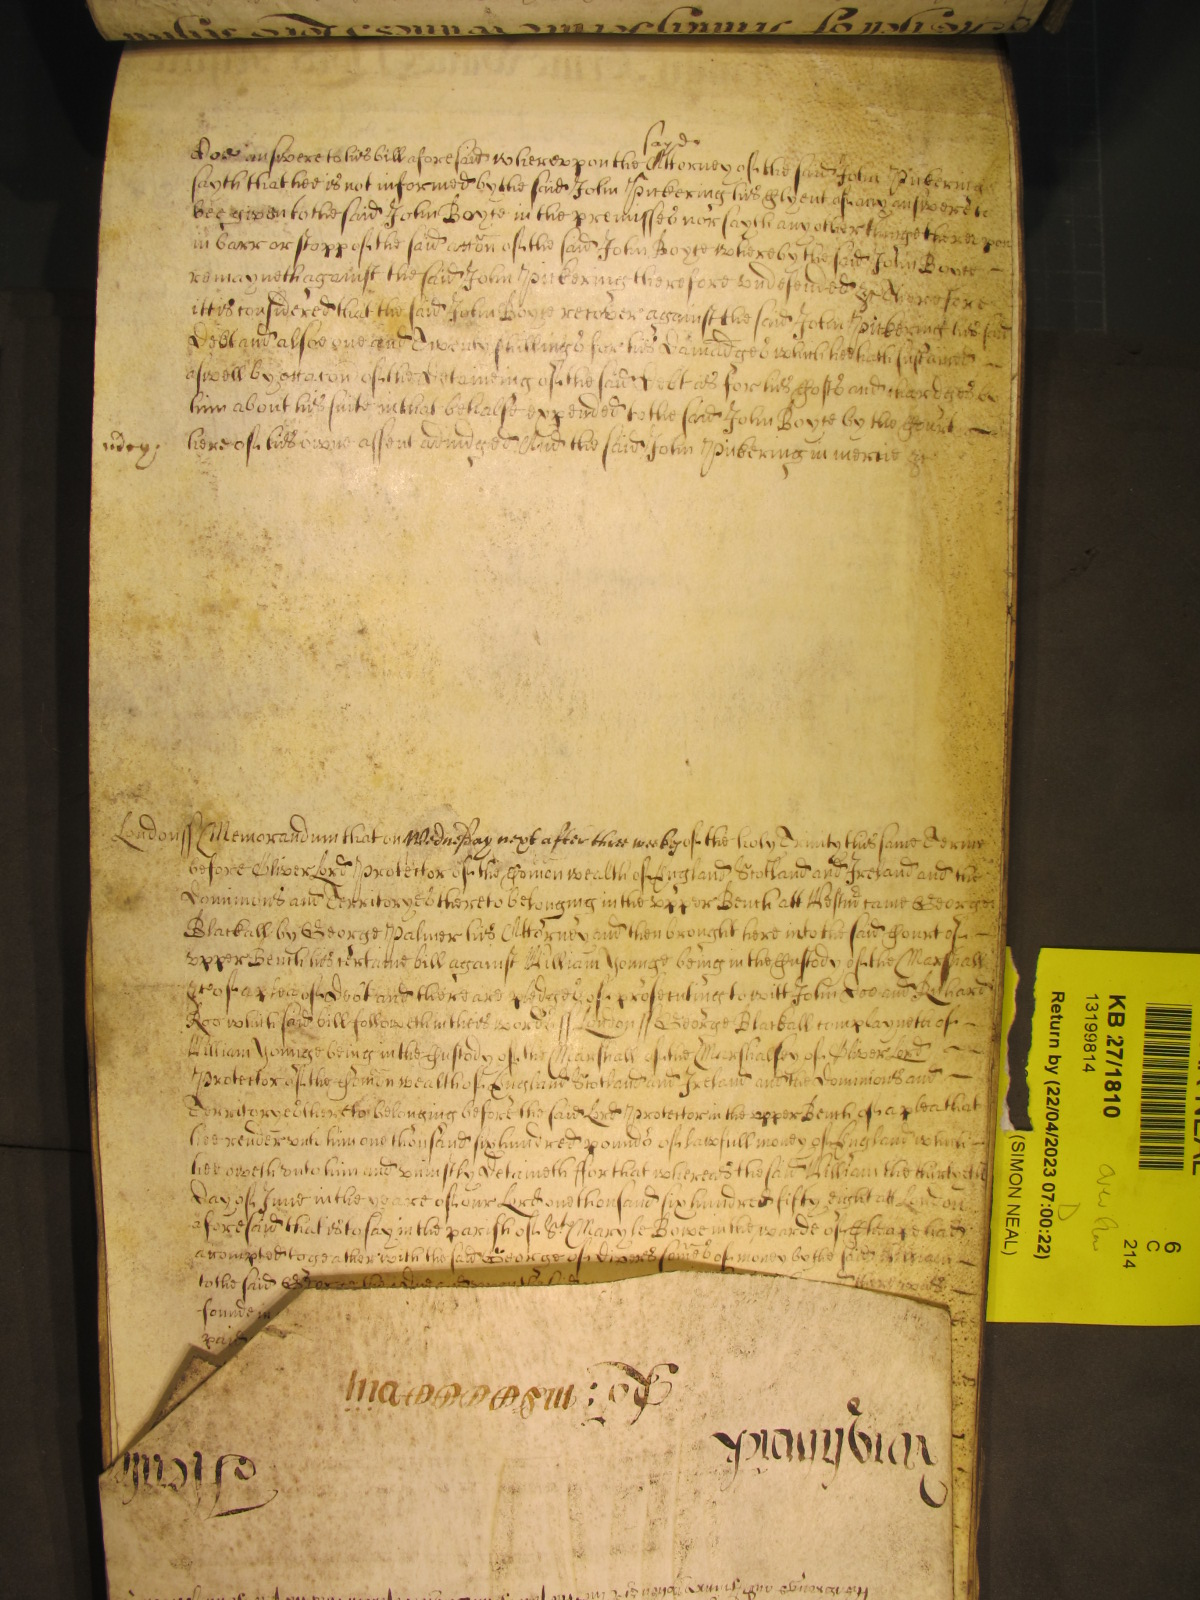 sayd
Doe answere to his bill aforesaid whereupon the Attorney of the said John Pickering
sayth that hee is not informed by the said John Pickering his Clyent of any answere to
bee given to the said John Boyte in the premisses nor sayth any other thinge thereupon
in barr or stopp of the said accon of the said John Boyte whereby the said John Boyte
remayneth against the said John Pickering therefore undefended &c Therefore
itt is considered that the said John Boyte recover against the said John Pickering his said
Debt and alsoe one and Twenty shillings for his Damadges which hee hath susteined
aswell by occacon of the Deteineing of the said Debt as for his Costs and chardges by
him about his suite in that behalfe expended to the said John Boyte by the Court
here of his owne assent adiudged And the said John Pickering in mercie &c
London ss Memorandum that on Wednesday next after three weekes of the holy Trinity this same Terme
before Oliver Lord Protector of the Comon wealth of England Scotland and Ireland and the
Dominions and Territoryes thereto belonging in the upper Bench att Westmr came George
Blackall by George Palmer his Attorney and then brought here into the said Court of
upper Bench his certaine bill against William Younge being in the Custody of the Marshall
&c of a plea of Debt and there are pledges of prosecuting to witt John Doe and Richard
Roo which said bill followeth in theis words ss London ss George Blackall complayneth of
William Younge being in the Custody of the Marshall of the Marshalsey of Oliver Lord
Protector of the Comon wealth of England Scotland and Ireland and the Dominions and
Territoryes thereto belonging before the said Lord Protector in the upper Bench of a plea that
hee render unto him one thousand six hundred pounds of lawfull money of England which
hee oweth unto him and uniustly Deteineth ffor that whereas the said William the thirtyeth
Day of June in the yeare of our Lord one thousand six hundred fifty eight att London
aforesaid that is to say in the parish of St Mary le Bowe in the warde of Cheape had
accompted togeather with the said George of Divers somes of money by the said William
to the said George
founde in
paid
Warghwick
KB 27/1810
13199814
Return by (22/04/2023 07:00:22)
(SIMON NEAL)
6
C
214